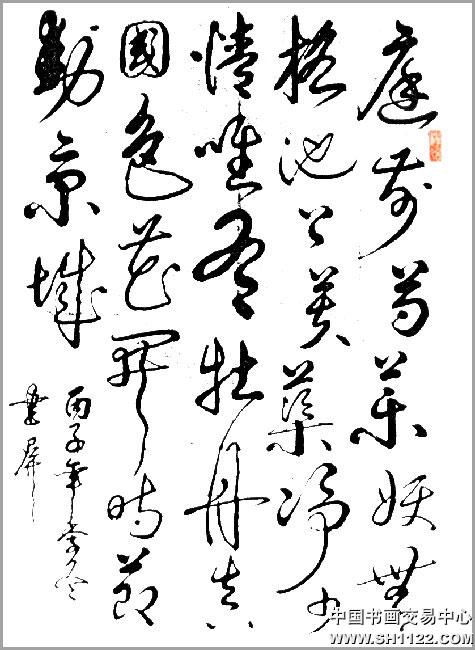 庭前芍藥妖無
格池上芙蕖淨少
情唯有牡丹真
國色花開時節
動京城
丙子年
書屏
中国书画交易中心
www.SH1122.com